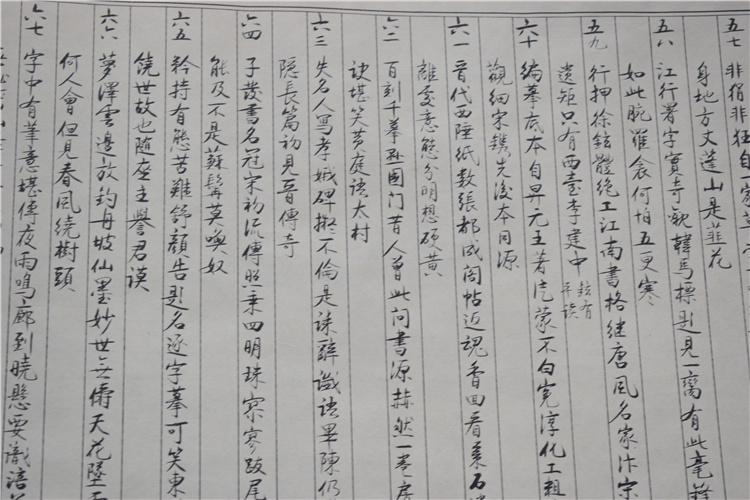 五七 非狷非狂自一家
身地方丈蓬山是韭花
五八 江行署字實奇觀韓馬標題見一斑有此毫鋒
如此腕羅衾何怕五更寒
五九 行押徐鉉體絕工江南書格继唐風名家汴宋
遺矩只有西臺李建中 鉉有平读
六十 編摹底本自昇元王著徒蒙不白冤淳化工粗
觀细宋鐫先後本同源
六一 晉代西陲纸数張都成閣帖返魂香回看棗石
離處意態分明想硬黄
六二 百刻千摹聚國門昔人曾此问書源赫然一卷房
訣堪笑黄庭语太村
六三 失名人寫孝娥碑擬不倫是誄辭識語畢陳仍
隐長篇初見晉傳奇
六四 子發書名冠宋初流傳照乘四明珠寥寥跋尾
能及不是蘇髯莫喚奴
六五 矜持有態苦難舒顏告題名逐字摹可笑東
饒世故也隨座主譽君謨
六六 夢澤雲邊放釣舟坡仙墨妙世無儔天花墜
何人會但見春風繞樹頭
六七 字中有筆意堪傳夜雨鳴廊到曉懸要識涪